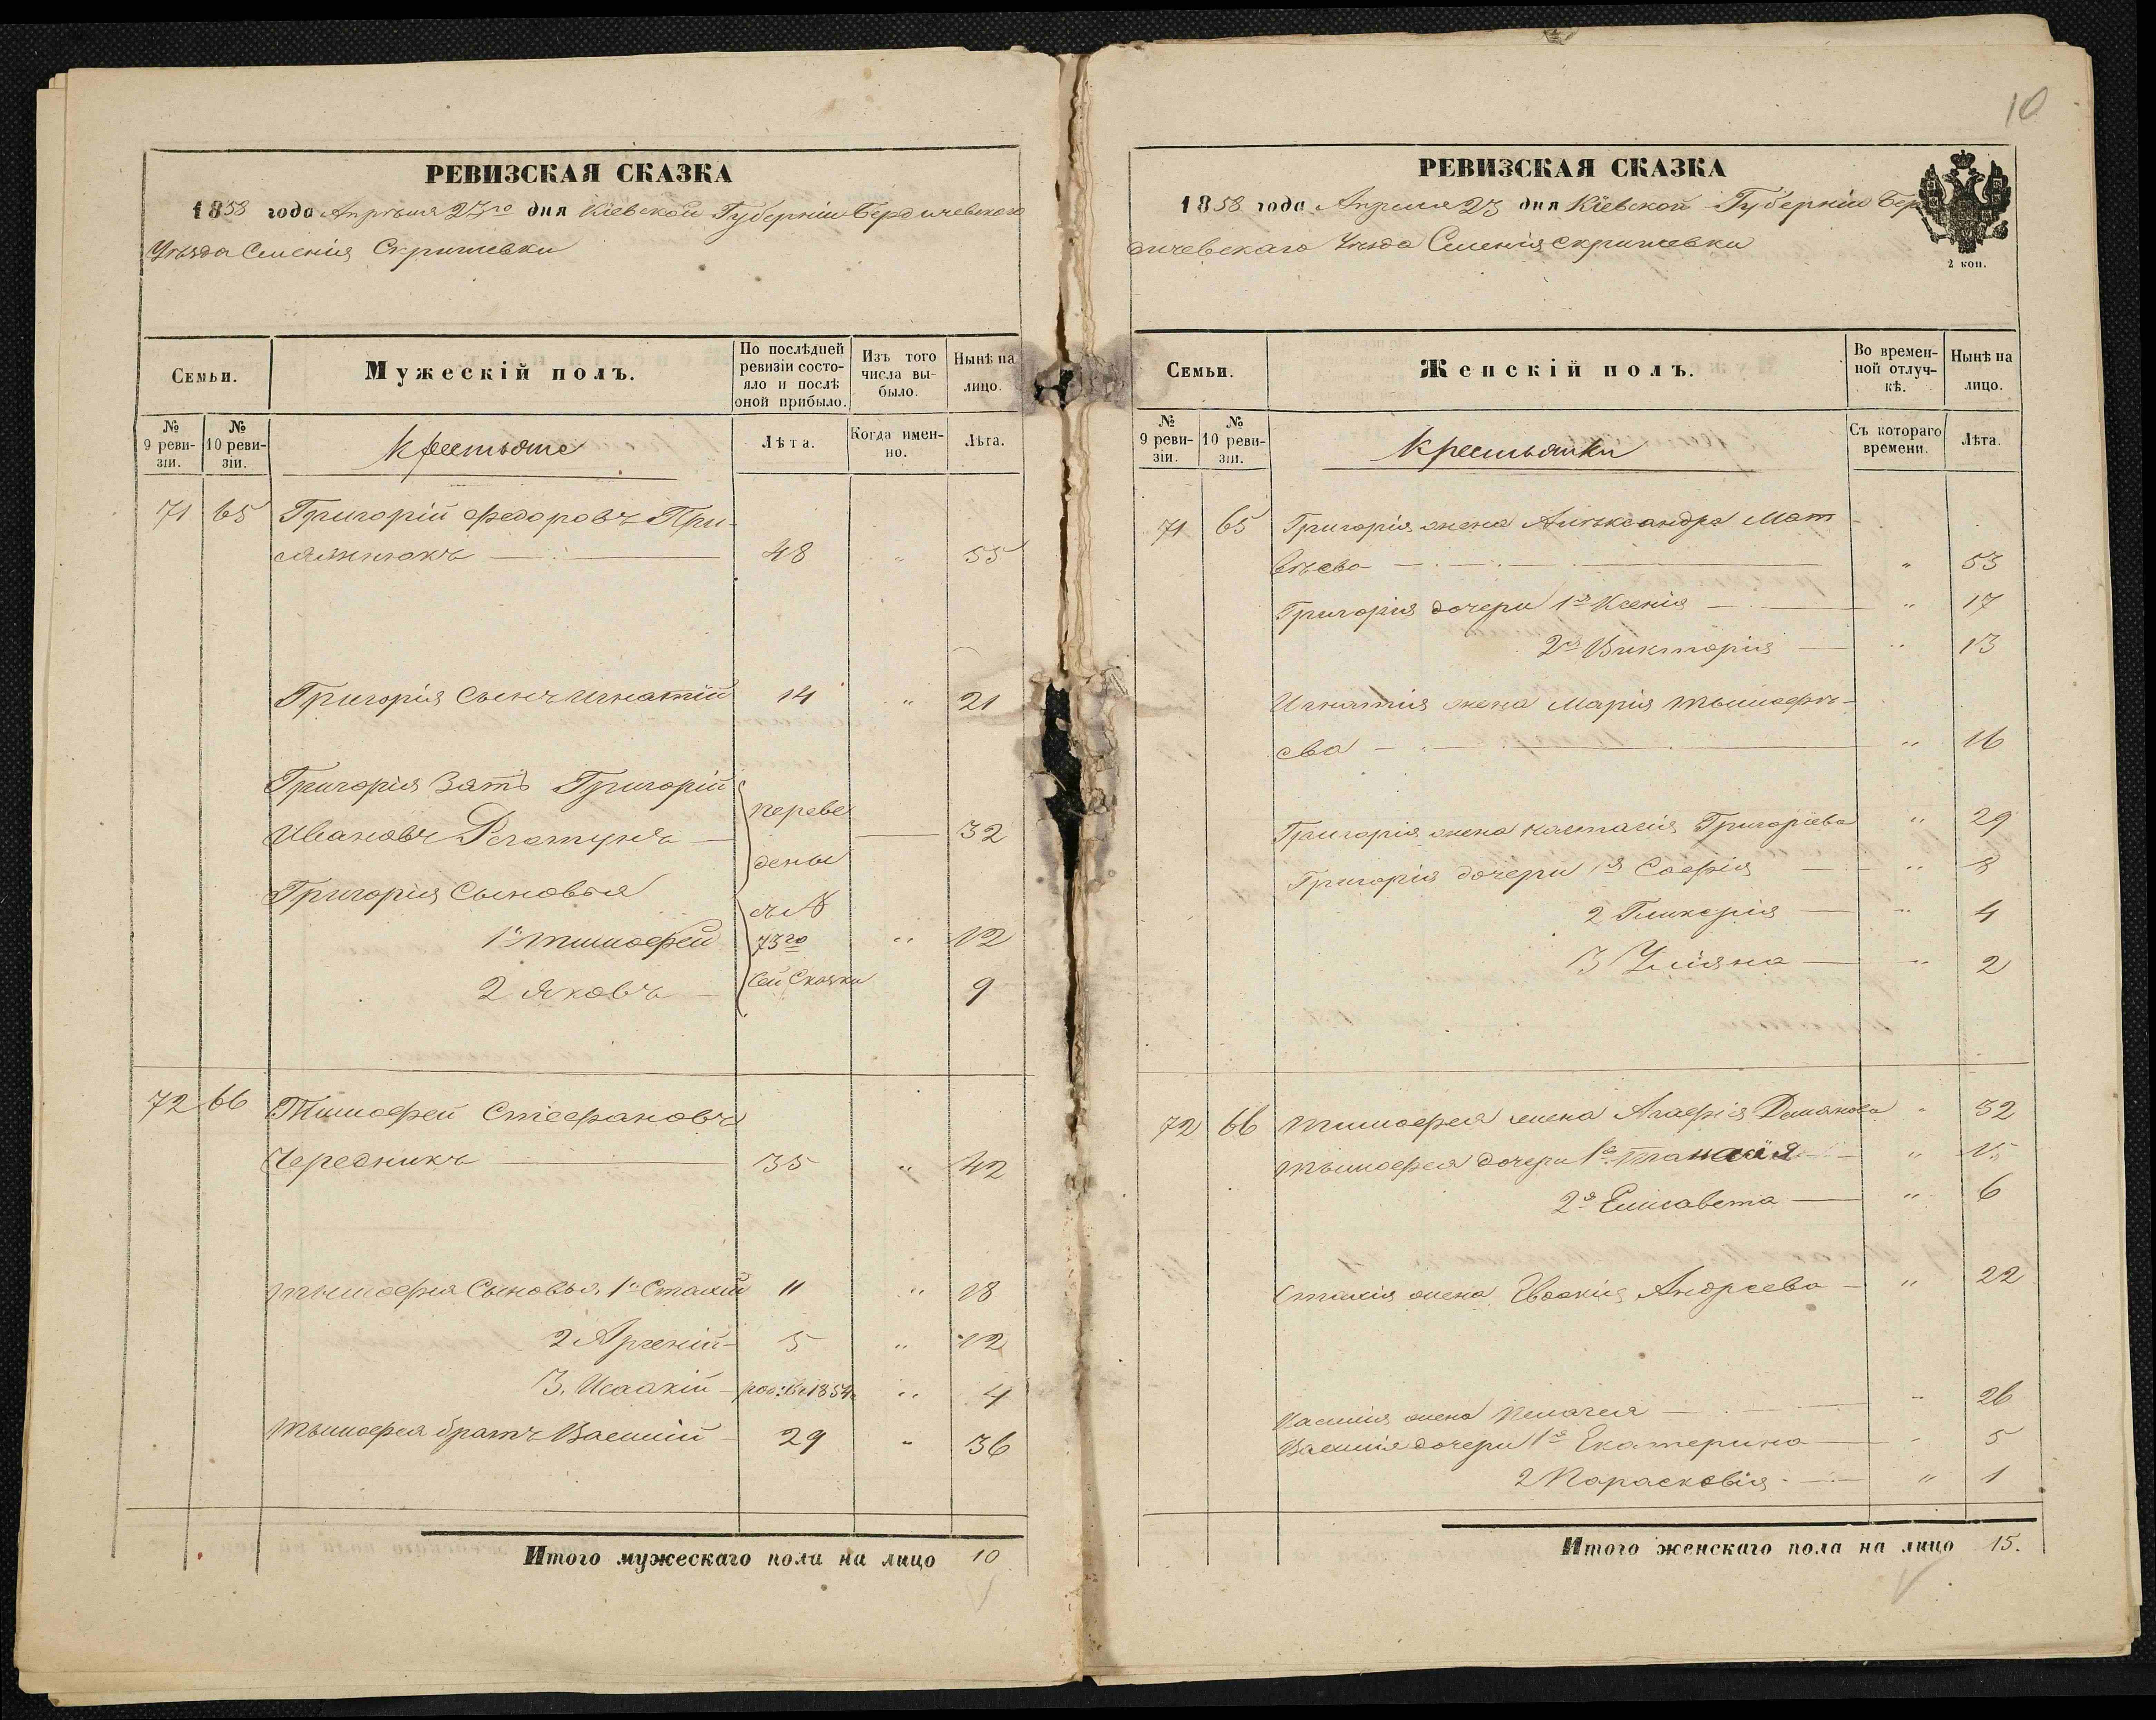 РЕВИЗСКАЯ СКАЗКА
1858 года Апрѣля 23го дня Кіевской Губерніи Бердичевскаго
Уѣзда Селенія Скришевки
Семьи.
Мужескій полъ.
По послѣдней ревизіи состояло и послѣ оной прибыло.
Изъ того числа выбыло.
Нынѣ на лицо.
№ 9 ревизіи.
№ 10 ревизіи.
Крестьяне
Лѣта.
Когда именно.
Лѣта.
71 65 Григорій Федоровъ При-
сяжнюкъ 48 " 55
Григорія сынъ Игнатій 14 " 21
Григорія Зять Григорій
Ивановъ 32
переве
дены
Григорія Сыновья
съ №
1й Тимофей 73го " 12
2 Яковъ сей Сказки 9
72 66 Тимофей Стефановъ
Чередникъ 35 " 42
Тимофея Сыновья 1й Стахій 11 " 18
2 Арсеній 5 " 12
3. Исаакій род: въ 1854 " 4
Тымофея братъ Василій 29 " 36
Итого мужескаго пола на лицо 10
10
РЕВИЗСКАЯ СКАЗКА
1858 года Апреля 23 дня Кіевской Губерніи Бер
дичевскаго Уезда Селенія Скришевки
2 коп.
Семьи.
Женскій полъ.
Во временной отлучкѣ.
Нынѣ на лицо.
№ 9 ревизіи.
№ 10 ревизіи.
Крестьянки
Съ котораго времени.
Лѣта.
71 65 Григорія жена Алѣксандра Мат
вѣева " 53
Григорія дочери 1я Ксенія " 17
2я Викторія " 13
Игнатія жена Марія Тымофѣ-
ева " 16
Григорія жена Настасія Григоріева " 29
Григорія дочери 1я Софія " 8
2 Гликерія " 4
3 Уліяна " 2
72 66 Тимофея жена Агафія Демянова " 32
Тымофея дочери 1я " 15
2я Елисавета " 6
Стахія жена Евдокія Андреева " 22
Василія жена Пелагея " 26
Василія дочери 1я Екатерина " 5
2 Парасковія " 1
Итого женскаго пола на лицо 15.